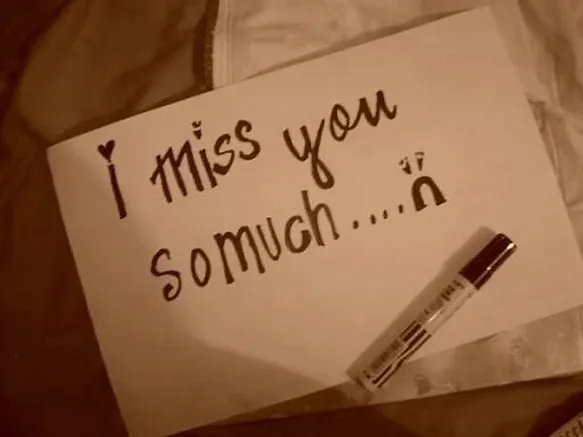 i miss you
so much....